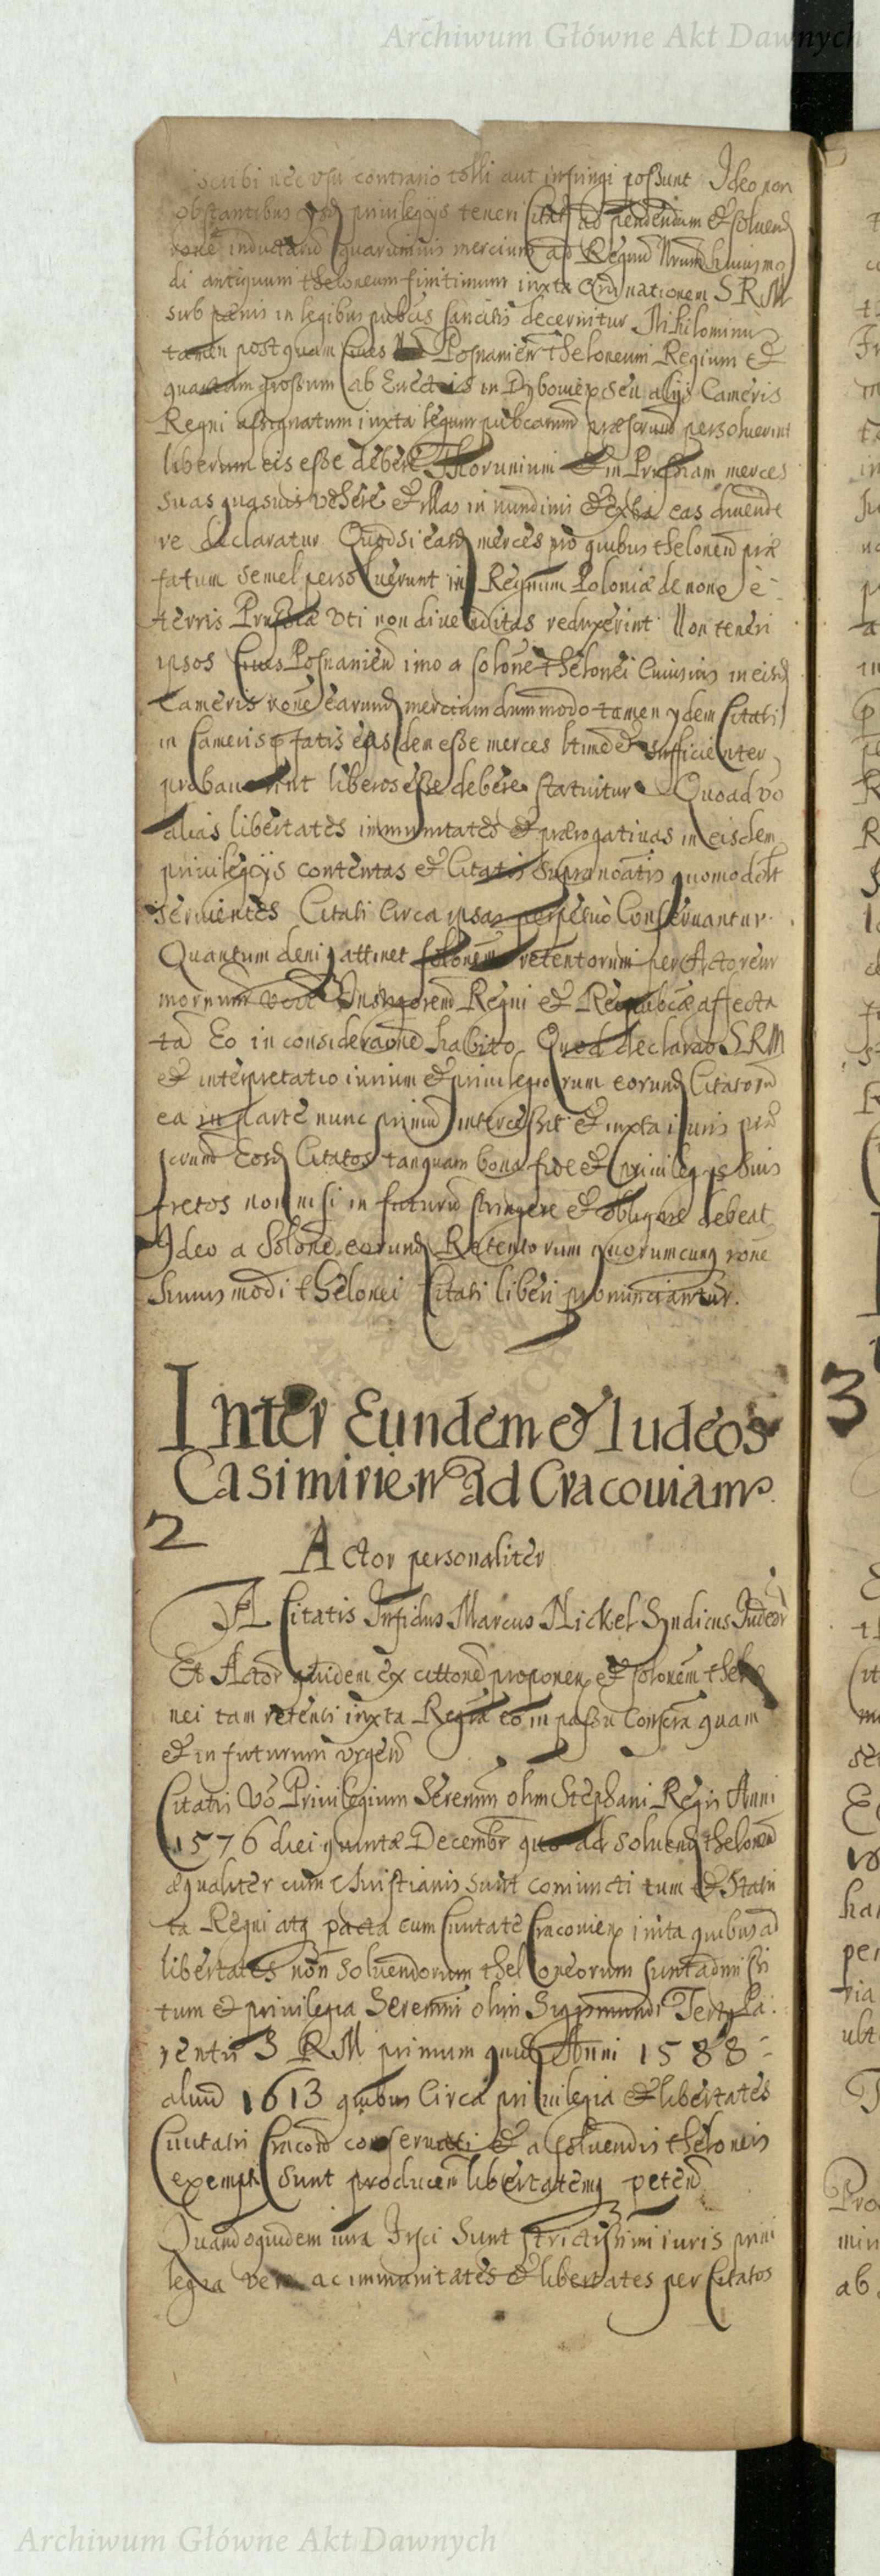 Archiwum Główne Akt Dawnych
scribi nec usu contrario tolli aut infringi possunt Ideo non
obstantibus ysd privilegijs teneri Citatos ad pendendum & solvend
rone inductarum quarumvis mercium ad Regnum Nrum huiusmo
di antiquum theloneum finitimum iuxta Ordinationem S R M
sub pænis in legibus publcis sancitis decernitur Nihilominus
tamen postquam Cives Posnanien theloneum Regium &
quartam grossum ab Evectis in Dybowiex seu alijs Cameris
Regni assignatum iuxta legum pubcarum præscrum persolverint
liberum eis esse debere Thorunium & in Prussiam merces
suas quasvis vehere & illas in nundinis & extra eas divende
re declaratur Quod si easd merces pro quibus theloneu præ
fatum semel persolverunt in Regnum Poloniæ de nono è
terris Prussiæ uti non divenditas reduxerint Non teneri
ipsos Cives Posnanien imo a solone thelonei Cuiusvis in eisd
Cameris rone earund mercium dummodo tamen ydem Citati
in Cameris pfatis easdem esse merces ltime & sufficienter
probaverint liberos esse debere statuitur Quoad vo
alias libertates immunitates & prærogativas in eisdem
privilegijs contentas & Citatis supranoatis quomodolt
servientes Citati Circa ipsas perpetuo Conservantur.
Quantum deniq attinet solonem retentorum per Actorem
Instigatorem Regni & Reipubcæ affecta
ta Eo in consideraone habito Quod declarao S R M
& interpretatio iurium & privilegiorum eorund Citatoru
ea in parte nunc primu intercessit & iuxta iuris præ
scrum Eosd Citatos tanquam bona fide & privilegijs suis
fretos non nisi in futuru stringere & obligare debeat
Ideo a solone eorund Retentorum quorumcunq rone
huiusmodi thelonei Citati liberi pronunciantur.
Inter Eundem & Iudeos
Casimirien ad Cracoviam
2
Actor personaliter
A Citatis Infidus Marcus Nickel Syndicus Iudeor
Et Actor quidem ex cittone proponen & solonem thelo
nei tam retenti iuxta Regia eo in passu Conscra quam
& in futurum urgen
Citatis Vo Privilegium Serenm olim Stephani Regis Anni
1576 diei quintæ Decembr quo ad solvend thelonea
æqualiter cum Christianis sunt coniuncti tum & Statu
ta Regni atq pacta cum Civitate Cracovien inita quibus ad
libertates non solvendorum theloneorum sunt admissi
tum & privilegia Serenmi olim Sigismundi Tertij Pa
rentis S R M primum quid Anni 1588
aliud 1613 quibus Circa privilegia & libertates
Civitatis Cracov conservati & a solvendis theloneis
exempti sunt producen libertatemq peten
Quandoquidem iura Fisci sunt strictissimi iuris privi
legia vero ac immunitates & libertates per Citatos
3
Archiwum Główne Akt Dawnych